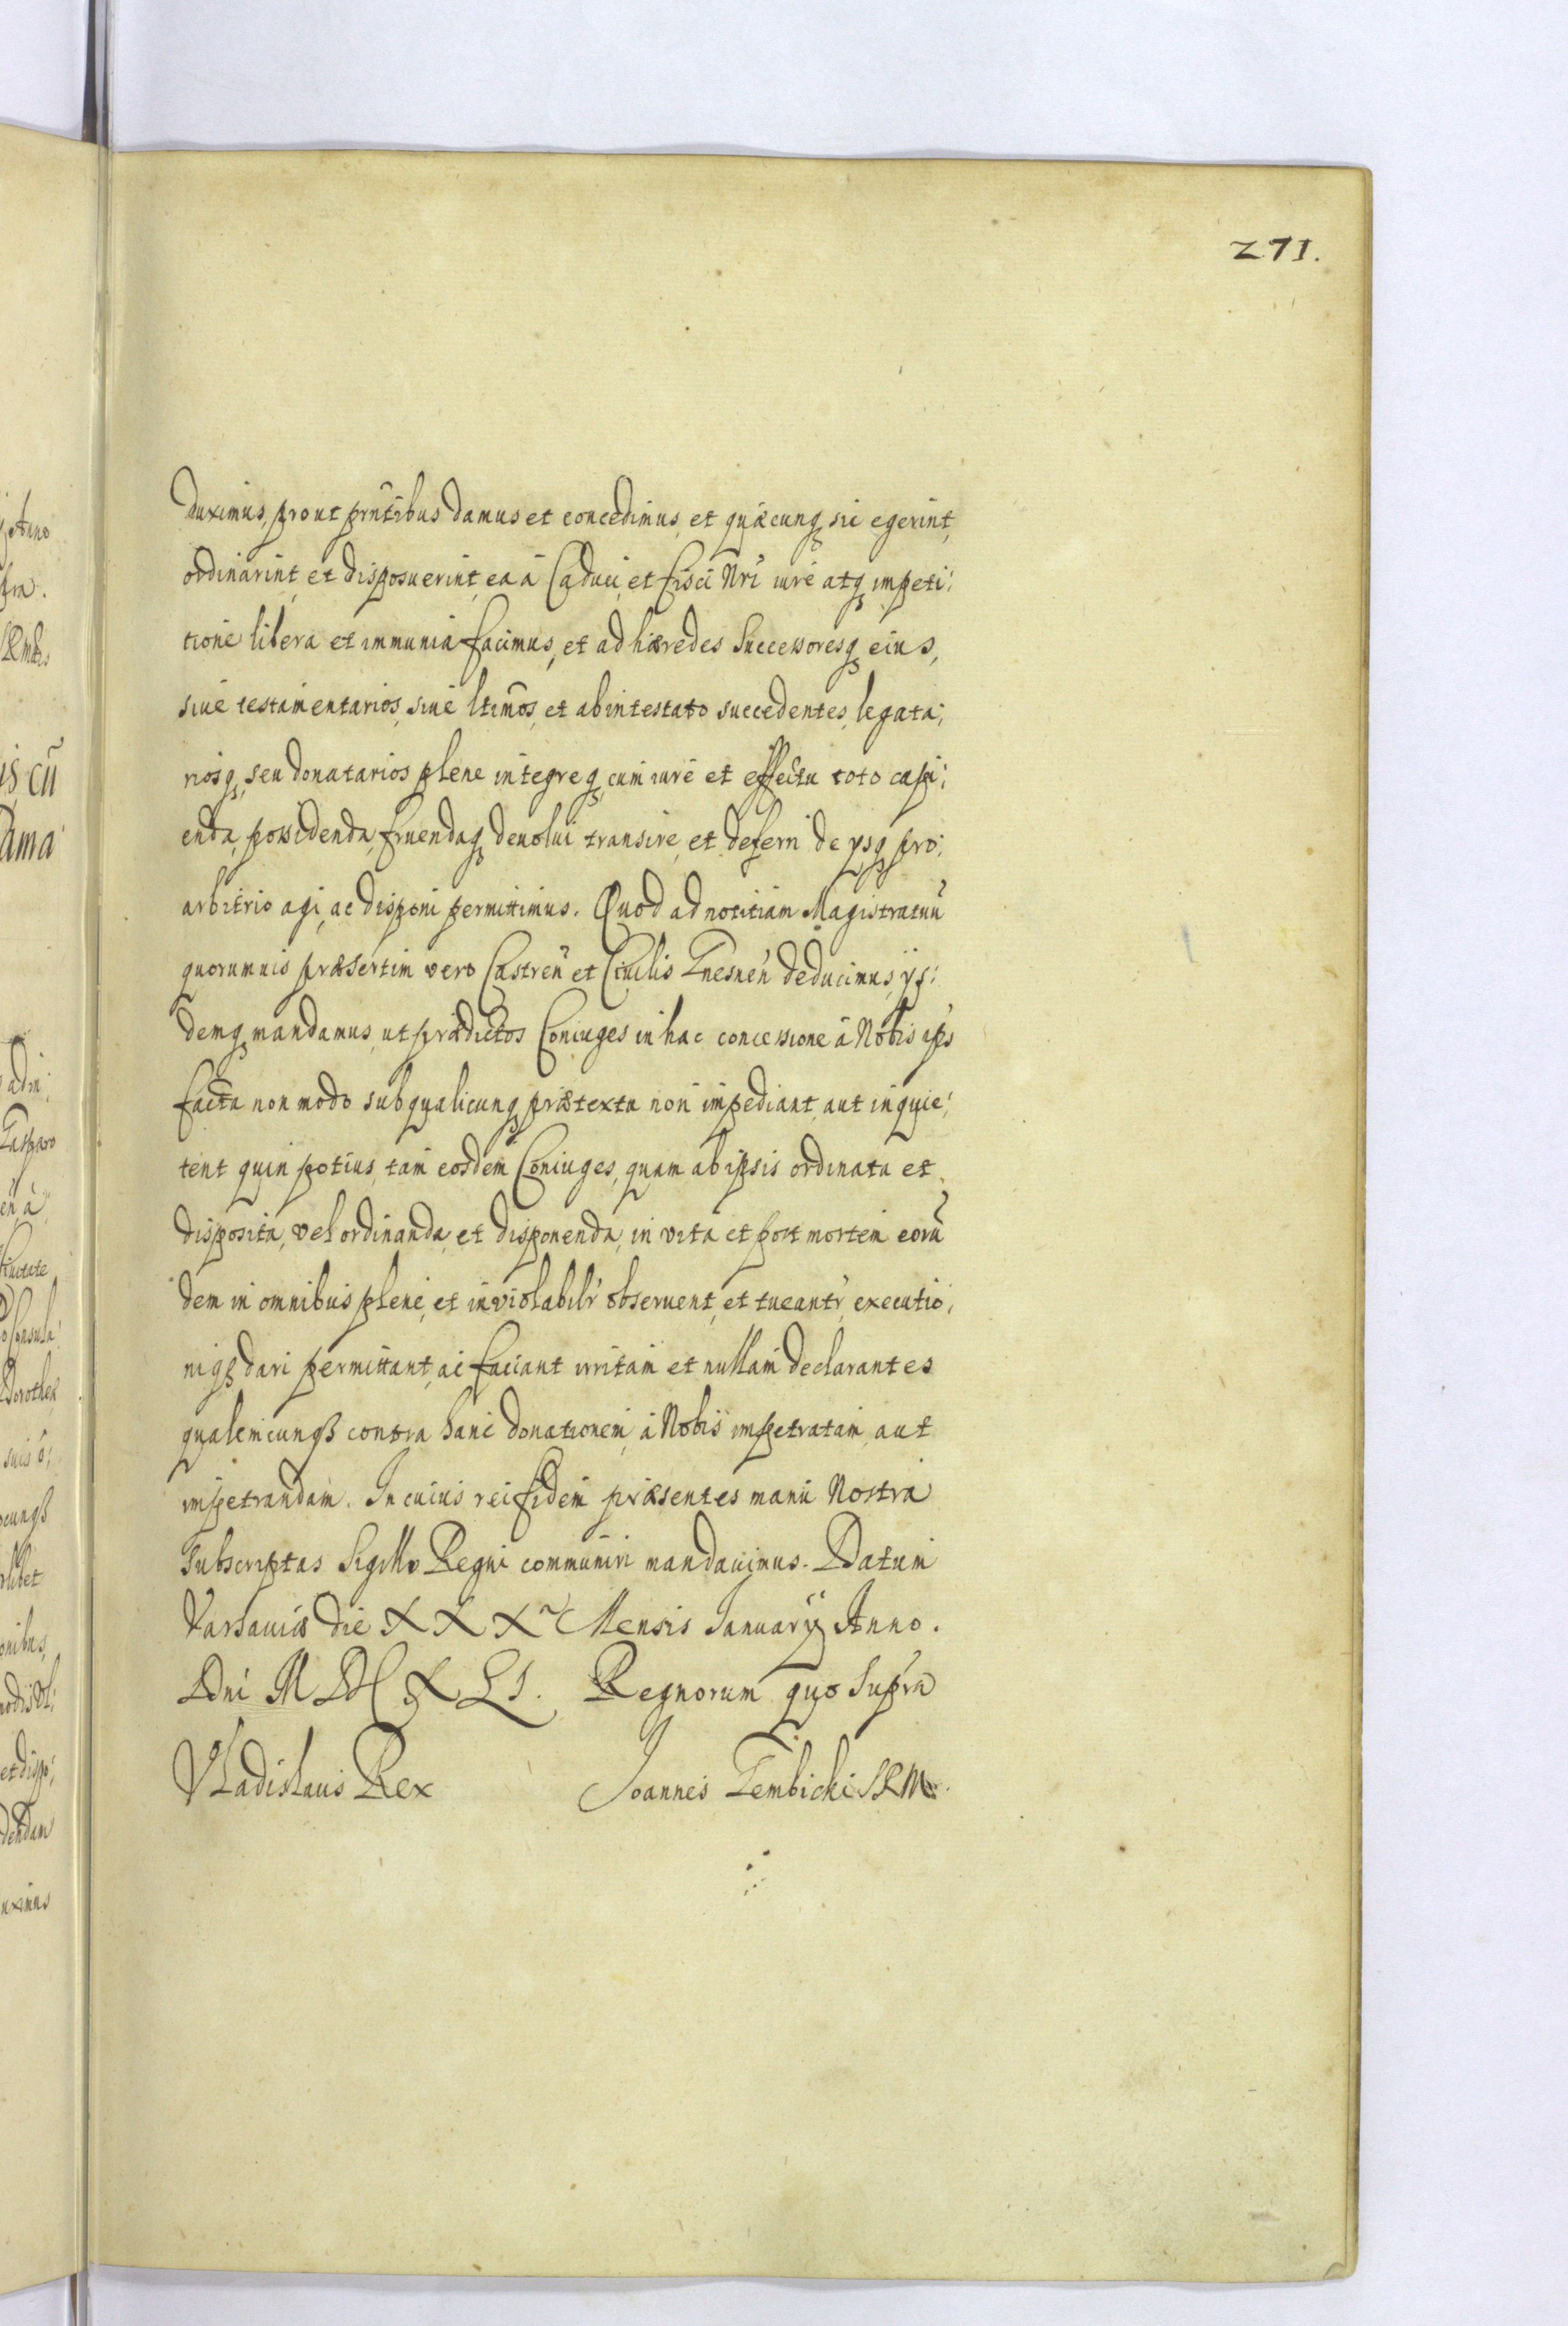 271.
duximus, prout prñtibus damus et concedimus, et quæcunq sic egerint,
ordinarint, et disposuerint, ea à Caduci, et fisci Nri iure atq impeti:
tione libera et immunia facimus, et ad hæredes Successoresq eius,
siue testamentarios, siue ltimos, et abintestato succedentes, legata;
riosq, seu donatarios plene integreq, cum iure et effectu toto capi;
enda, possidenda, fruendaq deuolui transire, et deferri de ysq pro:
arbitrio agi, ac disponi permittimus. Quod ad notitiam Magistratuũ
quorumuis præsertim vero Castreñ et Ciuilis Gnesneñ deducimus, ys:
demq mandamus, ut prædictos Coniuges in hac concessione à Nobis ipsis
facta non modo sub qualicunq prætextu non impediant, aut inquie:
tent quin potius, tam eosdem Coniuges, quam ab ipsis ordinata et
disposita, vel ordinanda, et disponenda, in vita et post mortem eorũ
dem in omnibus plene, et inviolabilr obseruent, et tueantr, executio,
niq dari permittant, ac faciant irritam et nullam declarantes
qualemcunq contra hanc donationem, à Nobis impetratam, aut
impetrandam. In cuius rei fidem præsentes manu Nostra
Subscriptas Sigillo Regni communiri mandauimus. Datum
Varsauiæ die XXX Mensis January Anno.
Dni MDCXLI. Regnorum quo Supra
Vladislaus Rex Joannes Gembicki SRM.